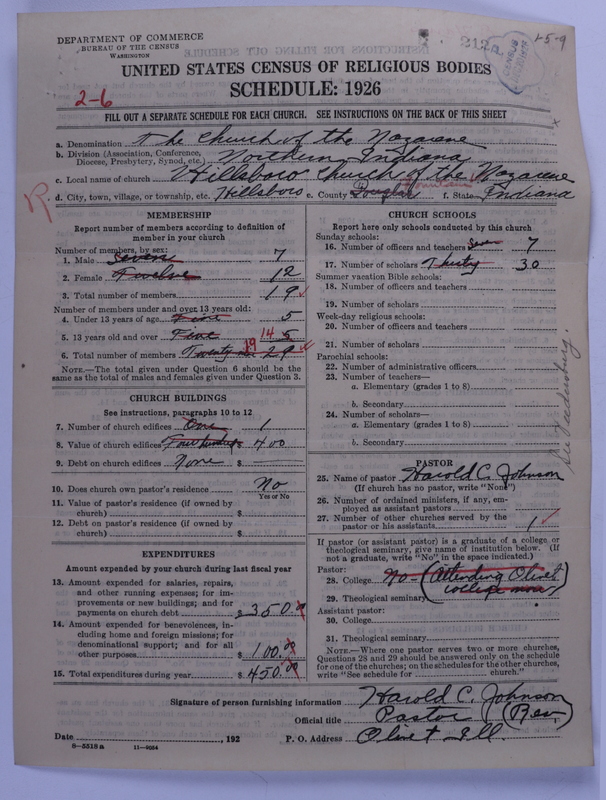 DEPARTMENT OF COMMERCE
BUREAU OF THE CENSUS
WASHINGTON
212A
1-5-9
UNITED STATES CENSUS OF RELIGIOUS BODIES
SCHEDULE: 1926
2-6
FILL OUT A SEPARATE SCHEDULE FOR EACH CHURCH. SEE INSTRUCTIONS ON THE BACK OF THIS SHEET
a. Denomination The Church of the Nazarene
b. Division (Association, Conference, Diocese, Presbytery, Synod, etc.) Northern Indiana
c. Local name of church Hillsboro Church of the Nazarene
R
d. City, town, village, or township, etc. Hillsboro e. County Douglas Fountain f. State Indiana
MEMBERSHIP
Report number of members according to definition of
member in your church
Number of members, by sex:
1. Male Seven 7
2. Female Twelve 12
3. Total number of members 19
Number of members under and over 13 years old:
4. Under 13 years of age Five 5
5. 13 years old and over Five 14 5
6. Total number of members 19 29
NOTE.—The total given under Question 6 should be
same as the total of males and females given under Question 3.
CHURCH BUILDINGS
See instructions, paragraphs 10 to 12
7. Number of church edifices One 1
8. Value of church edifices Four hundred $ 400
9. Debt on church edifices None $ —
10. Does church own pastor's residence No
Yes or No
11. Value of pastor's residence (if owned by
church) $
12. Debt on pastor's residence (if owned by
church) $
EXPENDITURES
Amount expended by your church during last fiscal year
13. Amount expended for salaries, repairs,
and other running expenses; for im-
provements or new buildings; and for
payments on church debt $ 350.00
14. Amount expended for benevolences, in-
cluding home and foreign missions; for
denominational support; and for all
other purposes $ 100.00
15. Total expenditures during year $ 450.00
CHURCH SCHOOLS
Report here only schools conducted by this church
Sunday schools:
16. Number of officers and teachers Seven 7
17. Number of scholars Thirty 30
Summer vacation Bible schools:
18. Number of officers and teachers
19. Number of scholars
Week-day religious schools:
20. Number of officers and teachers
21. Number of scholars
Parochial schools:
22. Number of administrative officers
23. Number of teachers—
a. Elementary (grades 1 to 8)
b. Secondary
24. Number of scholars—
a. Elementary (grades 1 to 8)
b. Secondary
PASTOR
25. Name of pastor Harold C. Johnson
(If church has no pastor, write "None")
26. Number of ordained ministers, if any, em-
ployed as assistant pastors
27. Number of other churches served by the
pastor or his assistants 1
If pastor (or assistant pastor) is a graduate of a college or
theological seminary, give name of institution below. (If
not a graduate, write "No" in the space indicated.)
Pastor:
28. College No - (Attending Olivet
College now)
29. Theological seminary
Assistant pastor:
30. College
31. Theological seminary
NOTE.—Where one pastor serves two or more churches,
Questions 28 and 29 should be answered only on the schedule
for one of the churches; on the schedules for the other churches,
write "See schedule for ............ church."
See Veedersburg.
Signature of person furnishing information Harold C. Johnson
Official title Pastor (Rev.)
Date , 192 P. O. Address Olivet Ill.
8-5518a 11-9034